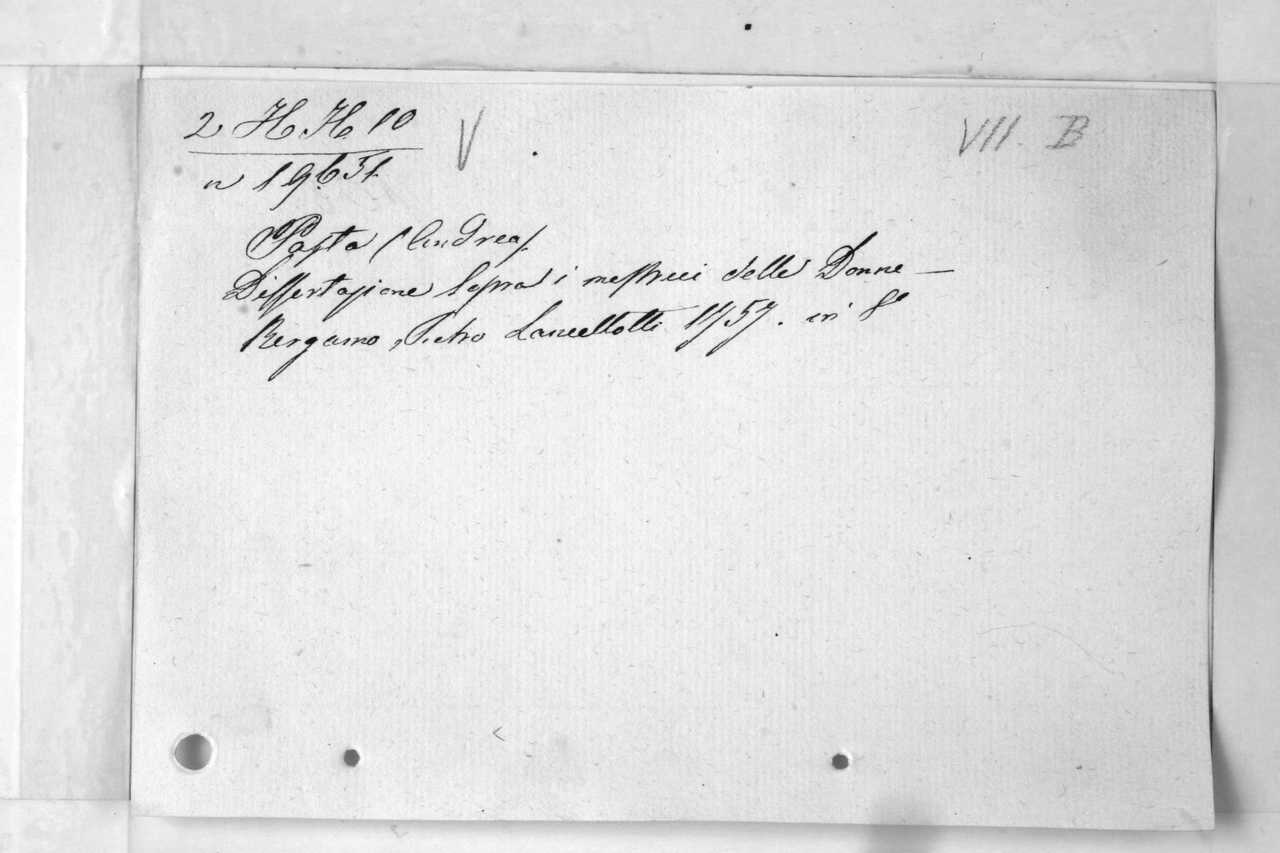 2 H.H. 10 V VII. B
n 19651.
Pasta (Andrea).
Dissertazione sopra i mestrui delle Donne —
Bergamo, Pietro Lancellotti 1757. in 8°